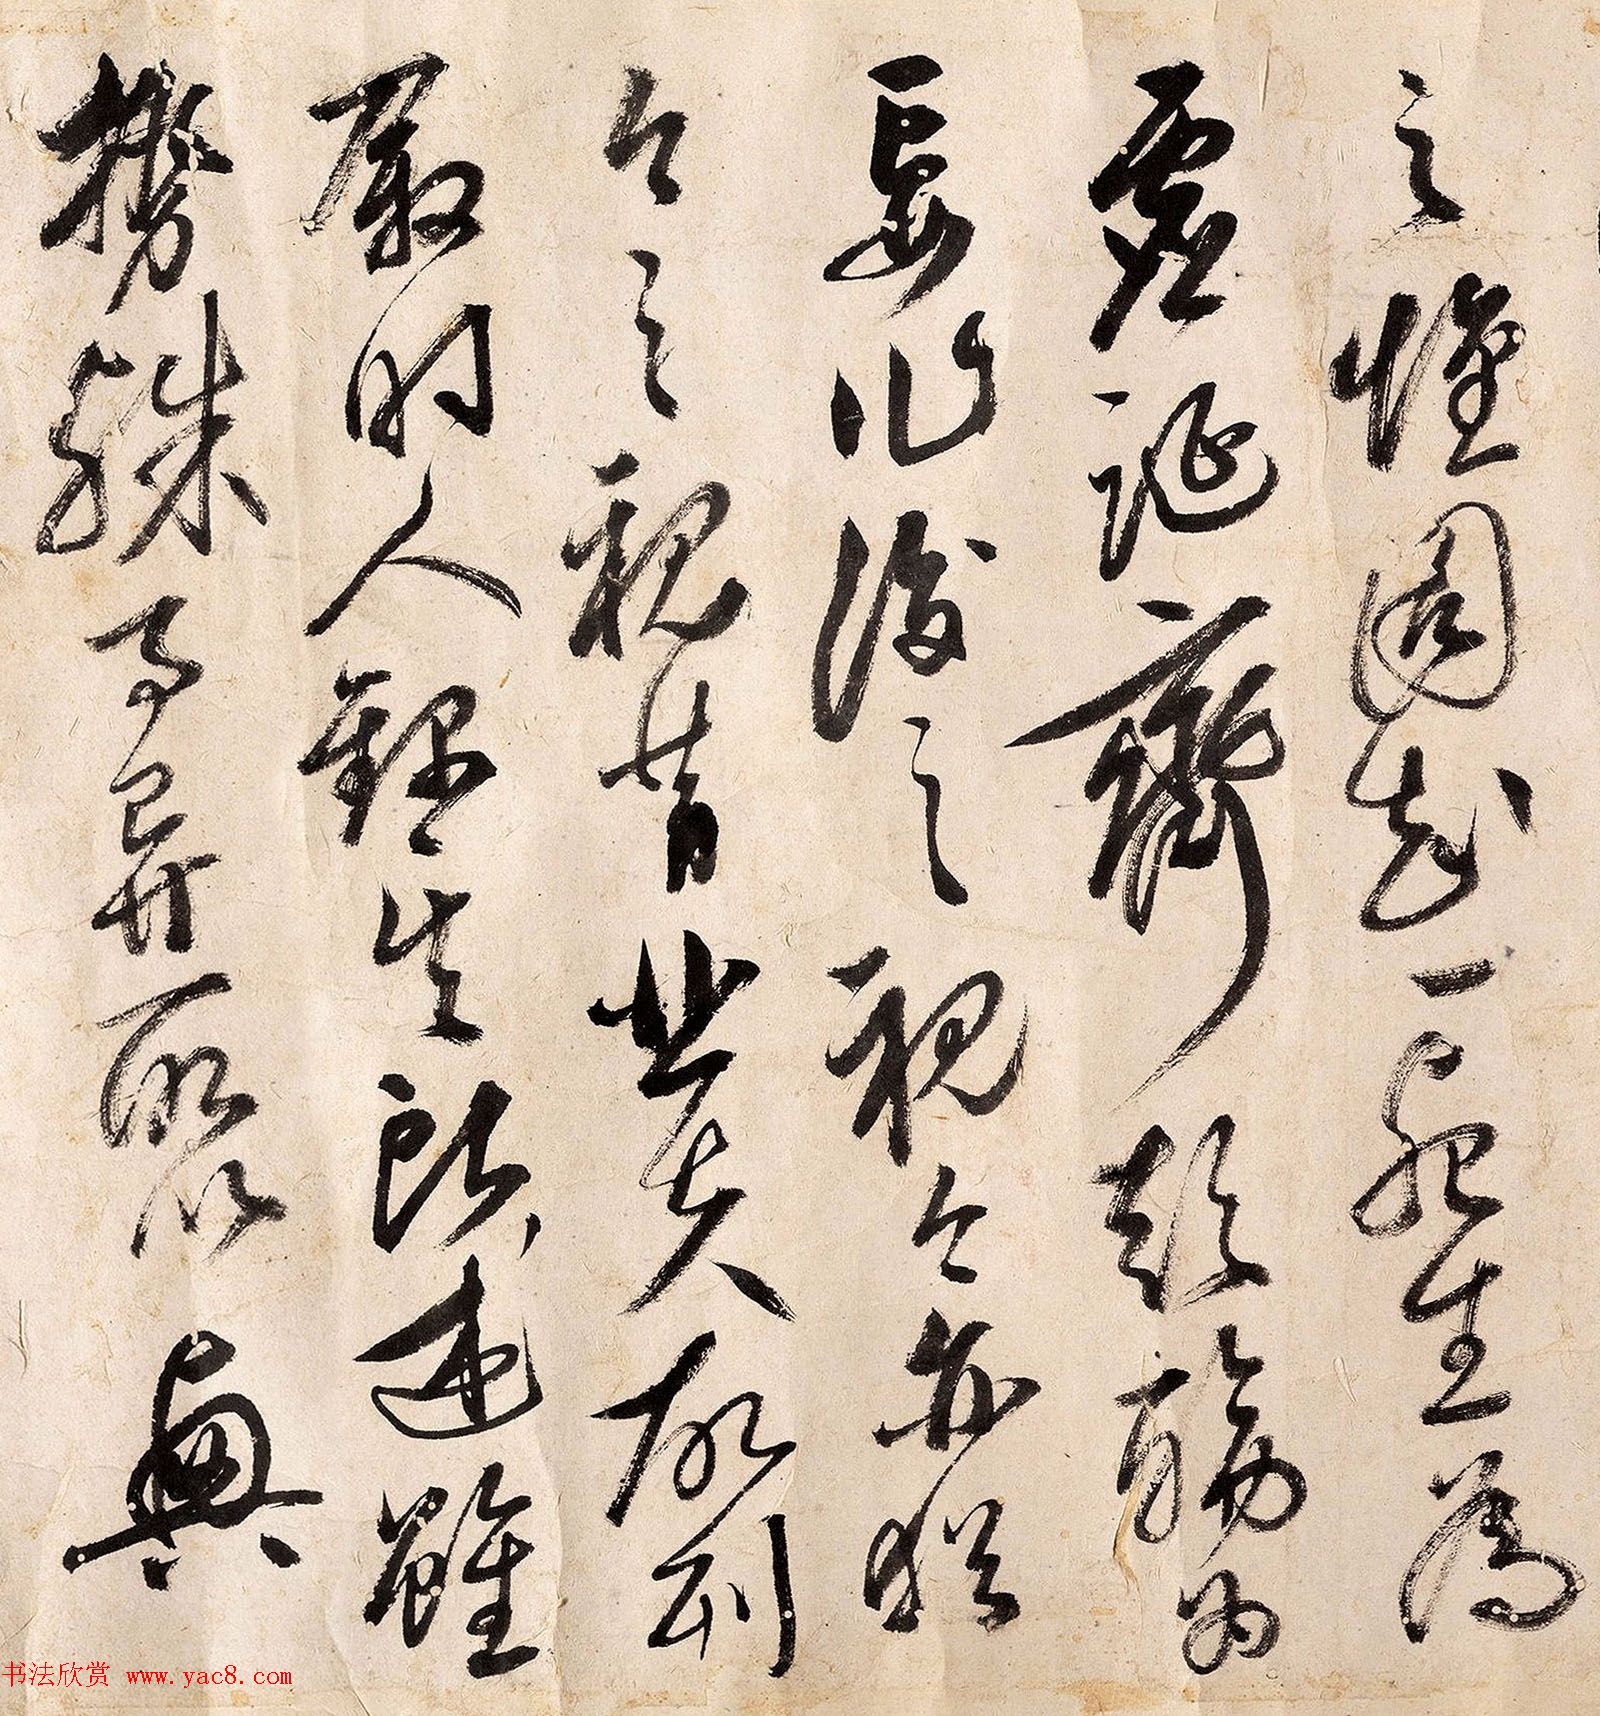 之惟固知一死生為
虛誕齊彭殤為
妄作後之視今亦猶
今之視昔悲夫故列
敘時人錄其所述雖
殊事異所以興
书法欣赏 www.yac8.com